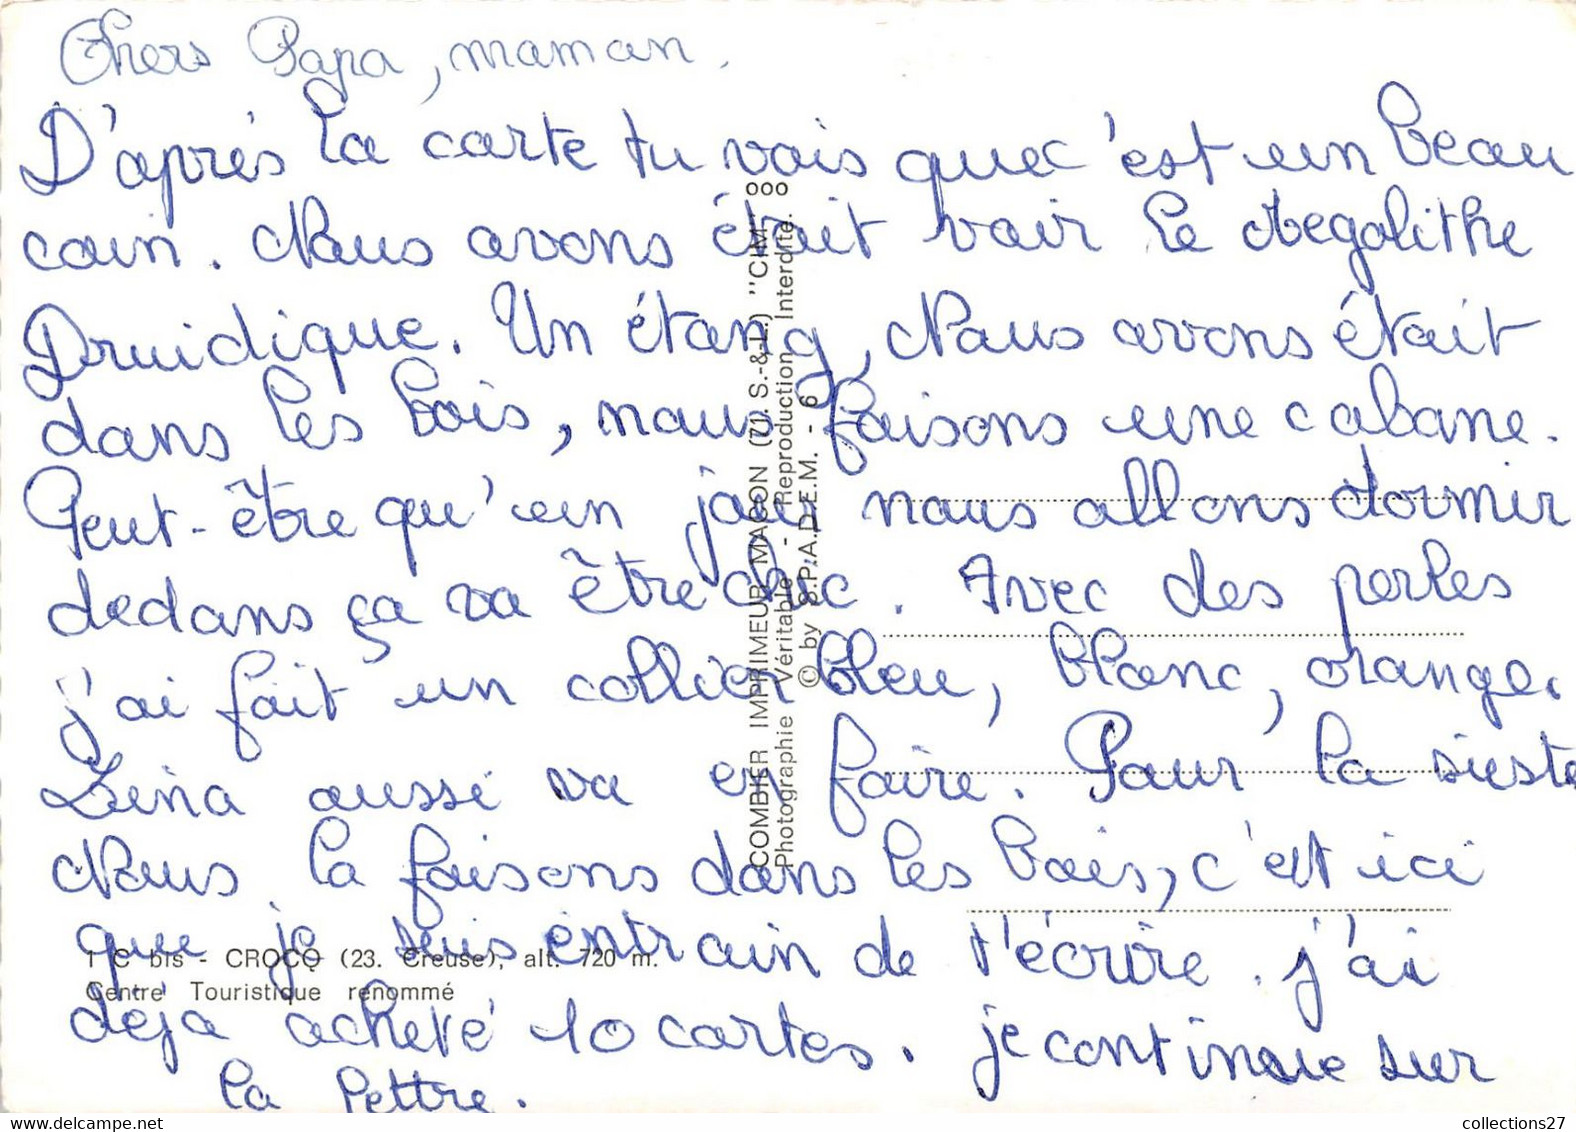 Chers Papa, maman.
D'après la carte tu vois que c'est un beau
coin. Nous avons était voir le Megalithe
Druidique. Un étang, Nous avons était
dans les bois, nous faisons une cabane.
Peut-être qu'un jour nous allons dormir
dedans ça va être chic. Avec des perles
j'ai fait un collier bleu, blanc, orange.
Zina aussi va en faire. Pour la sieste
Nous la faisons dans les bois, c'est ici
que je suis entrain de t'écrire. j'ai
déjà acheté 10 cartes. je continue sur
la lettre.
1 C bis - CROCQ (23. Creuse), alt. 720 m.
Centre Touristique renommé
COMBIER IMPRIMEUR MACON (71. S.-&-L.) "CIM"
Photographie Véritable - Reproduction Interdite.
© by S.P.A.D.E.M. - 6
collections27